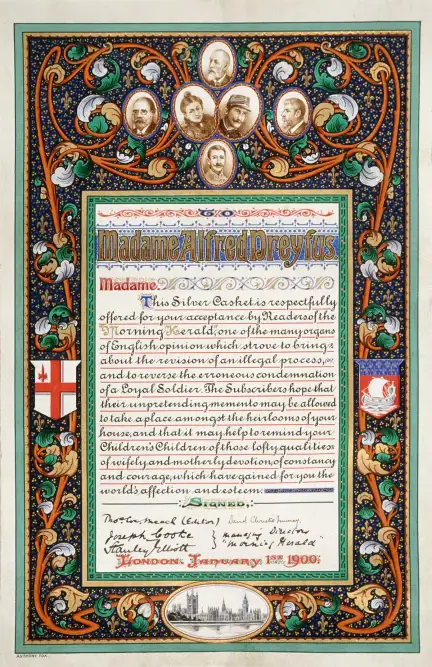 TO
Madame Alfred Dreyfus.
Madame,
This Silver Casket is respectfully
offered for your acceptance by Readers of the
"Morning Herald," one of the many organs
of English opinion which strove to bring
about the revision of an illegal process,
and to reverse the erroneous condemnation
of a Loyal Soldier. The Subscribers hope that
their unpretending memento may be allowed
to take a place amongst the heirlooms of your
house, and that it may help to remind your
Children's Children of those lofty qualities
of wifely and motherly devotion, of constancy
and courage, which have gained for you the
world's affection and esteem.
SIGNED,
(Editor) David Christie Murray
Joseph Cooke } Managing Director
Stanley "Morning Herald"
LONDON, JANUARY 1ST 1900.